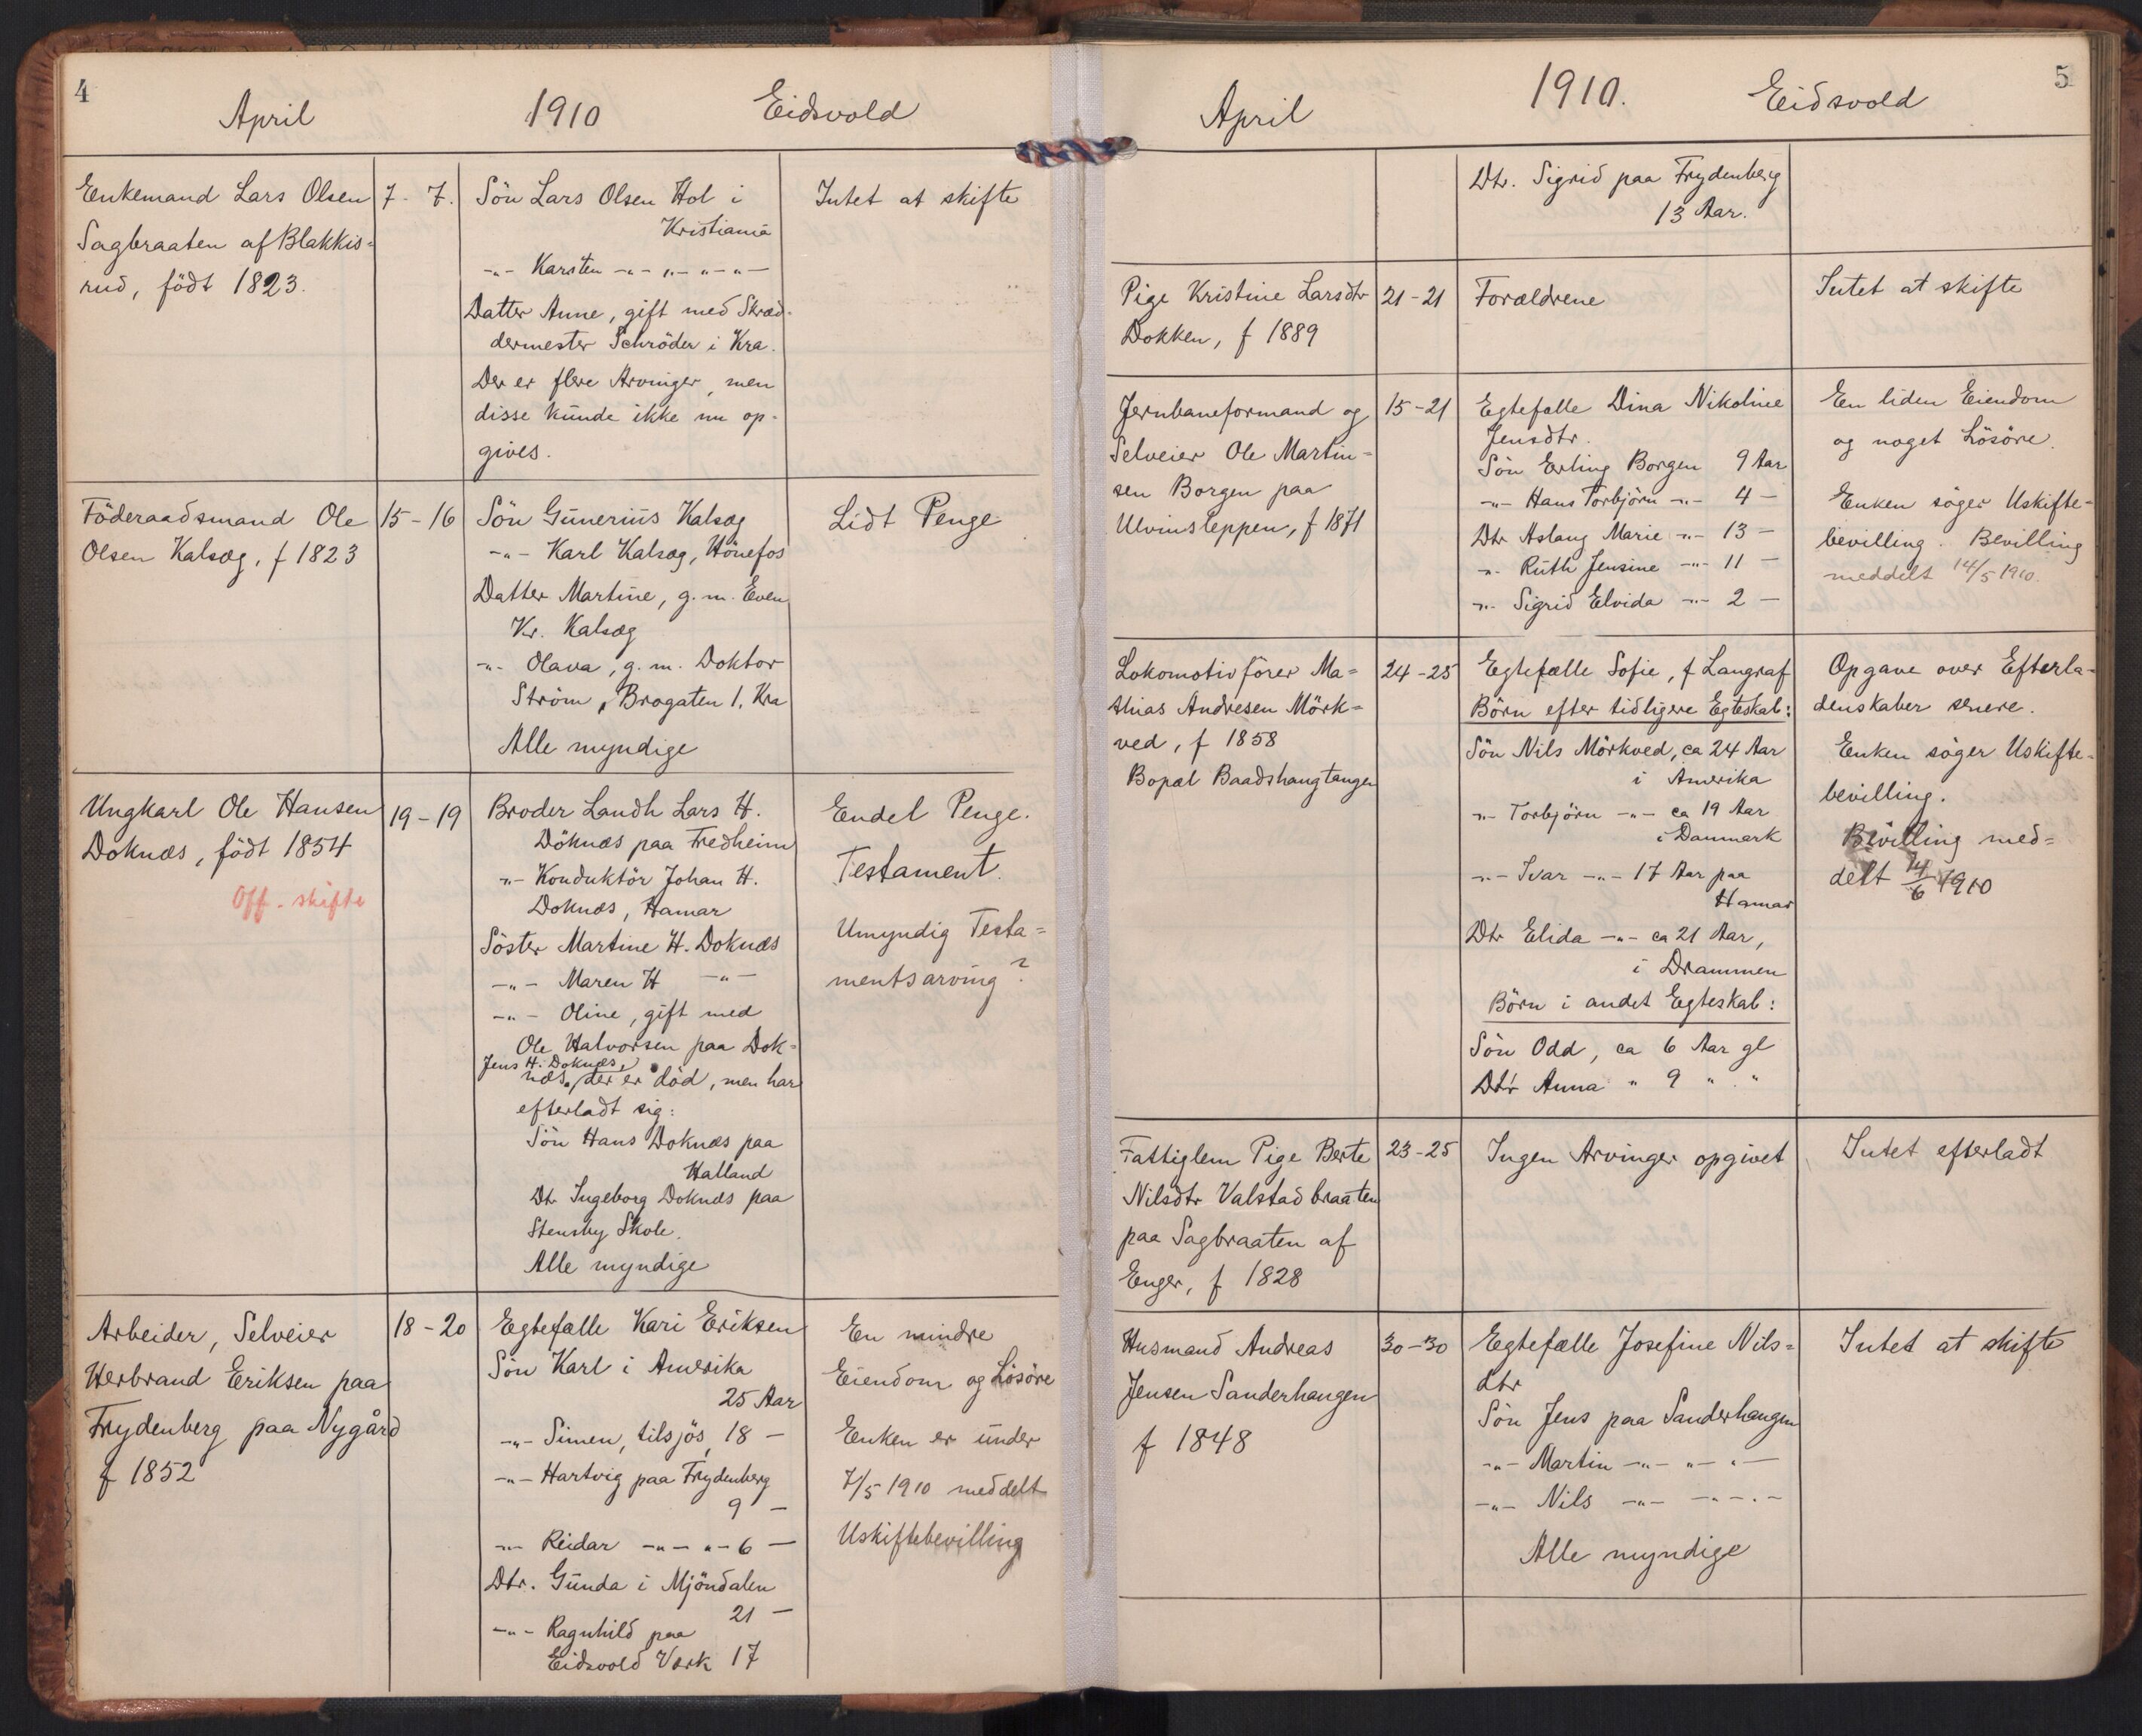 4
April 1910 Eidsvold
Enkemand Lars Olsen
Sagbraaten af Blakkis=
rud, födt 1823.
7 - 7.
Sön Lars Olsen Hol i
Kristiania
-"- Karsten -"- "- "- "-
Datter Anne, gift med Skræd-
dermester Schröder i Kra.
Der er flere Arvinger, men
disse kunde ikke nu op-
gives.
Intet at skifte
Föderaadsmand Ole
Olsen Kalsæg, f 1823
15-16
Sön Gunerius Kalsæg
-"- Karl Kalsæg, Hönefos
Datter Martine, g. m. Even
Kr. Kalsæg
-"- Olava, g. m. Doktor
Ström, Brogaten 1, Kra
Alle myndige
Lidt Penge
Ungkarl Ole Hansen
Doknæs, födt 1854
Off. skifte
19-19
Broder Landh Lars H.
Döknæs paa Fredheim
"- Konduktör Johan H.
Doknæs, Hamar
Söster Martine H. Doknæs
-"- Maren H -"-
-"- Oline, gift med
Ole Halvorsen paa Dok=
Jens H. Doknæs,
næs, der er död, men har
efterladt sig:
Sön Hans Doknæs paa
Halland
Dt. Ingeborg Doknæs paa
Stensby Skole.
Alle myndige
Endel Penge.
Testament.
Umyndig Testa=
mentsarving?
Arbeider, Selveier
Herbrand Eriksen paa
Frydenberg paa Nygård
f 1852
18-20
Egtefælle Kari Eriksen
Sön Karl i Amerika
25 Aar
-"- Simen, tilsjös, 18 -
-"- Hartvig paa Frydenberg
9 -
-"- Reidar -"- "- 6 -
Dtr. Gunda i Mjöndalen
21 -
-"- Ragnhild paa
Eidsvold Værk 17
En mindre
Eiendom og Lösöre
Enken er under
7/5 1910 meddelt
Uskiftebevilling
5
April 1910. Eidsvold
Dtr. Sigrid paa Frydenberg
13 Aar.
Pige Kristine Larsdtr
Dokken, f 1889
21-21
Forældrene
Intet at skifte
Jernbaneformand og
Selveier Ole Martin=
sen Borgen paa
Ulvinsleppen, f 1871
15-21
Egtefælle Dina Nikoline
Jensdtr.
Sön Erling Borgen 9 Aar
-"- Hans Torbjörn -"- 4 -
Dtr Aslaug Marie -"- 13 -
-"- Ruth Jensine -"- 11 -
-"- Sigrid Elvida -"- 2 -
En liden Eiendom
og noget Lösöre.
Enken söger Uskifte-
bevilling. Bevilling
meddelt 14/5 1910.
Lokomotivförer Ma=
thias Andresen Mörk=
ved, f 1858
Bopæl Baadshaugtangen
24-25
Egtefælle Sofie, f Langraf
Börn efter tidligere Egteskab:
Sön Nils Mörkved, ca 24 Aar
i Amerika
-"- Torbjörn -"- ca 19 Aar
i Danmark
-"- Ivar -"- 17 Aar paa
Hamar
Dtr Elida -"- ca 21 Aar,
i Drammen
Börn i andet Egteskab:
Sön Odd, ca 6 Aar gl
Dtr Anna " 9 " "
Opgave over Efterla-
denskaber senere.
Enken söger Uskifte-
bevilling.
Bevilling med=
delt 14/6 1910
Fattiglem Pige Berte
Nilsdtr Valstadbraaten
paa Sagbraaten af
Enger, f 1828
23-25
Ingen Arvinger opgivet
Intet efterladt
Husmand Andreas
Jensen Sanderhaugen
f 1848
30-30
Egtefælle Josefine Nils=
dtr
Sön Jens paa Sanderhaugen
-"- Martin -"- "- "-
-"- Nils -"- -"-"-
Alle myndige
Intet at skifte